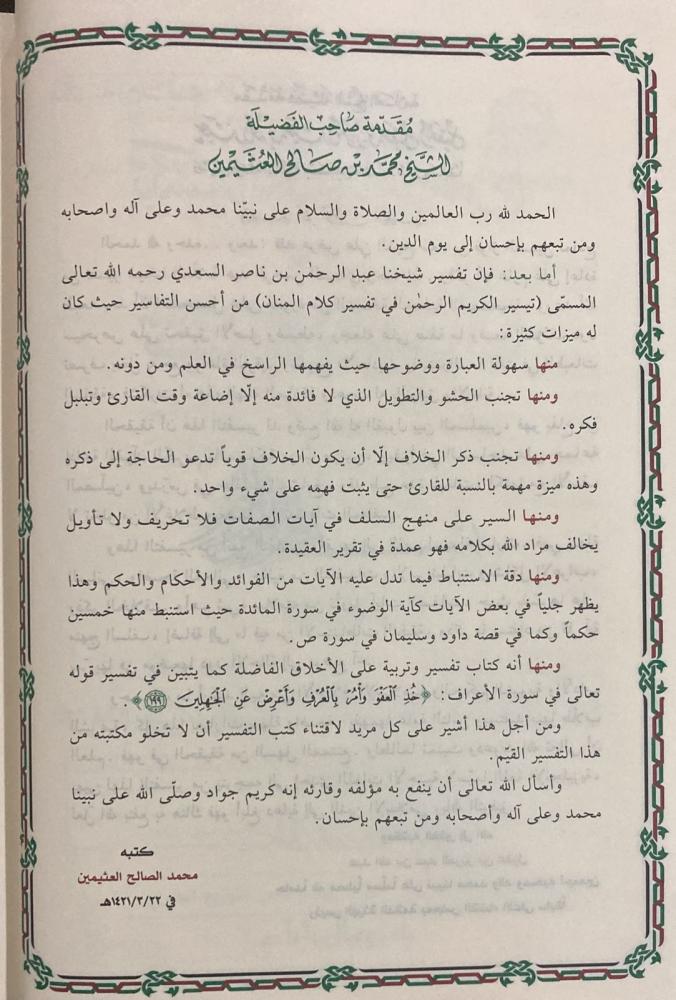 مُقَدّمة صَاحِبْ الفَضيلَة
الشَّيْخ محمَّد بْن صَالح العُثَيْمين
الحمد لله رب العالمين والصلاة والسلام على نبيّنا محمد وعلى آله واصحابه
ومن تبعهم بإحسان إلى يوم الدين.
أما بعد: فإن تفسير شيخنا عبد الرحمٰن بن ناصر السعدي رحمه الله تعالى
المسمّى (تيسير الكريم الرحمٰن في تفسير كلام المنان) من أحسن التفاسير حيث كان
له ميزات كثيرة:
منها سهولة العبارة ووضوحها حيث يفهمها الراسخ في العلم ومن دونه.
ومنها تجنب الحشو والتطويل الذي لا فائدة منه إلّا إضاعة وقت القارئ وتبلبل
فكره.
ومنها تجنب ذكر الخلاف إلّا أن يكون الخلاف قوياً تدعو الحاجة إلى ذكره
وهذه ميزة مهمة بالنسبة للقارئ حتى يثبت فهمه على شيء واحد.
ومنها السير على منهج السلف في آيات الصفات فلا تحريف ولا تأويل
يخالف مراد الله بكلامه فهو عمدة في تقرير العقيدة.
ومنها دقة الاستنباط فيما تدل عليه الآيات من الفوائد والأحكام والحكم وهذا
يظهر جلياً في بعض الآيات كآية الوضوء في سورة المائدة حيث استنبط منها خمسين
حكماً وكما في قصة داود وسليمان في سورة ص.
ومنها أنه كتاب تفسير وتربية على الأخلاق الفاضلة كما يتبين في تفسير قوله
تعالى في سورة الأعراف: ﴿خُذِ ٱلۡعَفۡوَ وَأۡمُرۡ بِٱلۡعُرۡفِ وَأَعۡرِضۡ عَنِ ٱلۡجَٰهِلِينَ ١٩٩﴾.
ومن أجل هذا أشير على كل مريد لاقتناء كتب التفسير أن لا تخلو مكتبته من
هذا التفسير القيّم.
وأسأل الله تعالى أن ينفع به مؤلفه وقارئه إنه كريم جواد وصلّى الله على نبينا
محمد وعلى آله وأصحابه ومن تبعهم بإحسان.
كتبه
محمد الصالح العثيمين
في ١٤٢١/٣/٢٢هـ